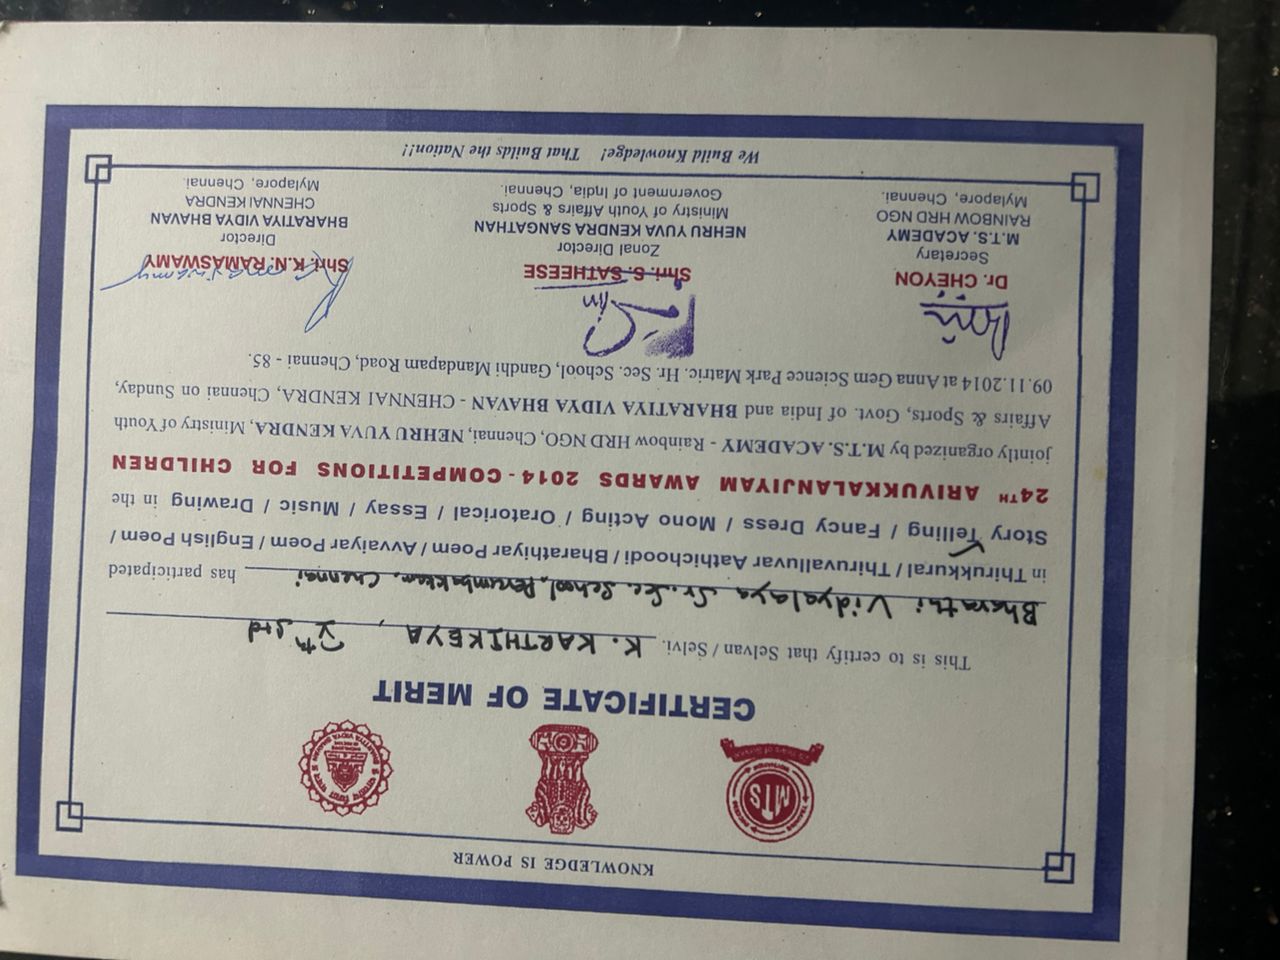 KNOWLEDGE IS POWER
MTS
25 Years of Service
CERTIFICATE OF MERIT
This is to certify that Selvan / Selvi. K. KARTHIKEYA, Xth std
Bharathi Vidyalaya Sr. Sec. School, Perumbakkam, Chennai has participated
in Thirukkural / Thiruvalluvar Aathichoodi / Bharathiyar Poem / Avvaiyar Poem / English Poem /
Story Telling / Fancy Dress / Mono Acting / Oratorical / Essay / Music / Drawing in the
24TH ARIVUKKALANJIYAM AWARDS 2014 - COMPETITIONS FOR CHILDREN
jointly organized by M.T.S. ACADEMY - Rainbow HRD NGO, Chennai, NEHRU YUVA KENDRA, Ministry of Youth
Affairs & Sports, Govt. of India and BHARATIYA VIDYA BHAVAN - CHENNAI KENDRA, Chennai on Sunday,
09.11.2014 at Anna Gem Science Park Matric. Hr. Sec. School, Gandhi Mandapam Road, Chennai - 85.
Dr. CHEYON
Secretary
M.T.S. ACADEMY
RAINBOW HRD NGO
Mylapore, Chennai.
Shri. S. SATHEESE
Zonal Director
NEHRU YUVA KENDRA SANGATHAN
Ministry of Youth Affairs & Sports
Government of India, Chennai.
Shri. K.N. RAMASWAMY
Director
BHARATIYA VIDYA BHAVAN
CHENNAI KENDRA
Mylapore, Chennai.
We Build Knowledge! That Builds the Nation!!